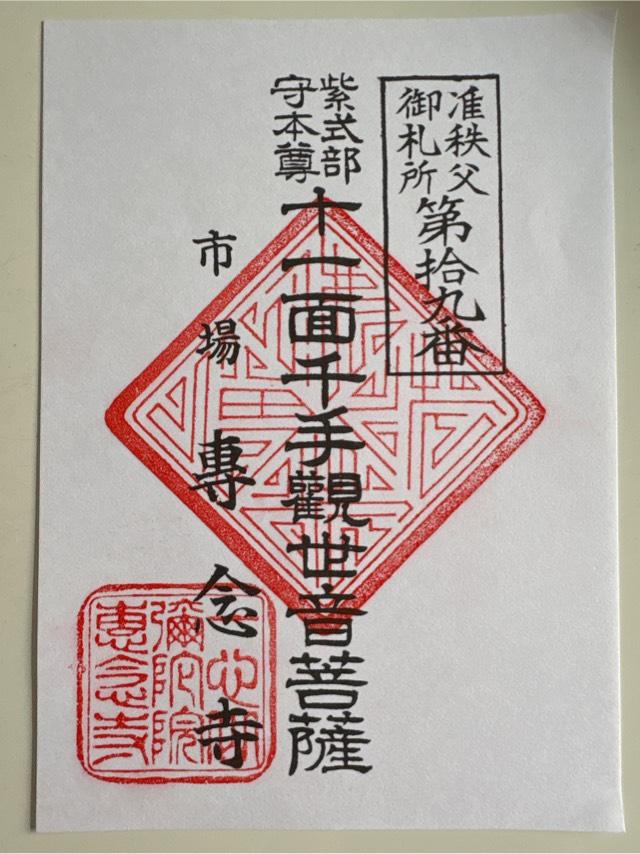 准秩父
御札所
第拾九番
紫式部
守本尊
十一面千手觀世音菩薩
市場專念寺
彌陀院
專念寺